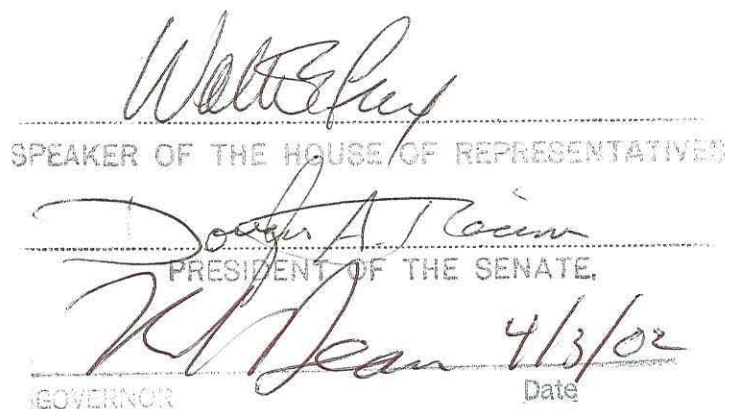 Walt E Freed
SPEAKER OF THE HOUSE OF REPRESENTATIVES
Douglas A. Racine
PRESIDENT OF THE SENATE.
Dean 4/3/02
GOVERNOR Date